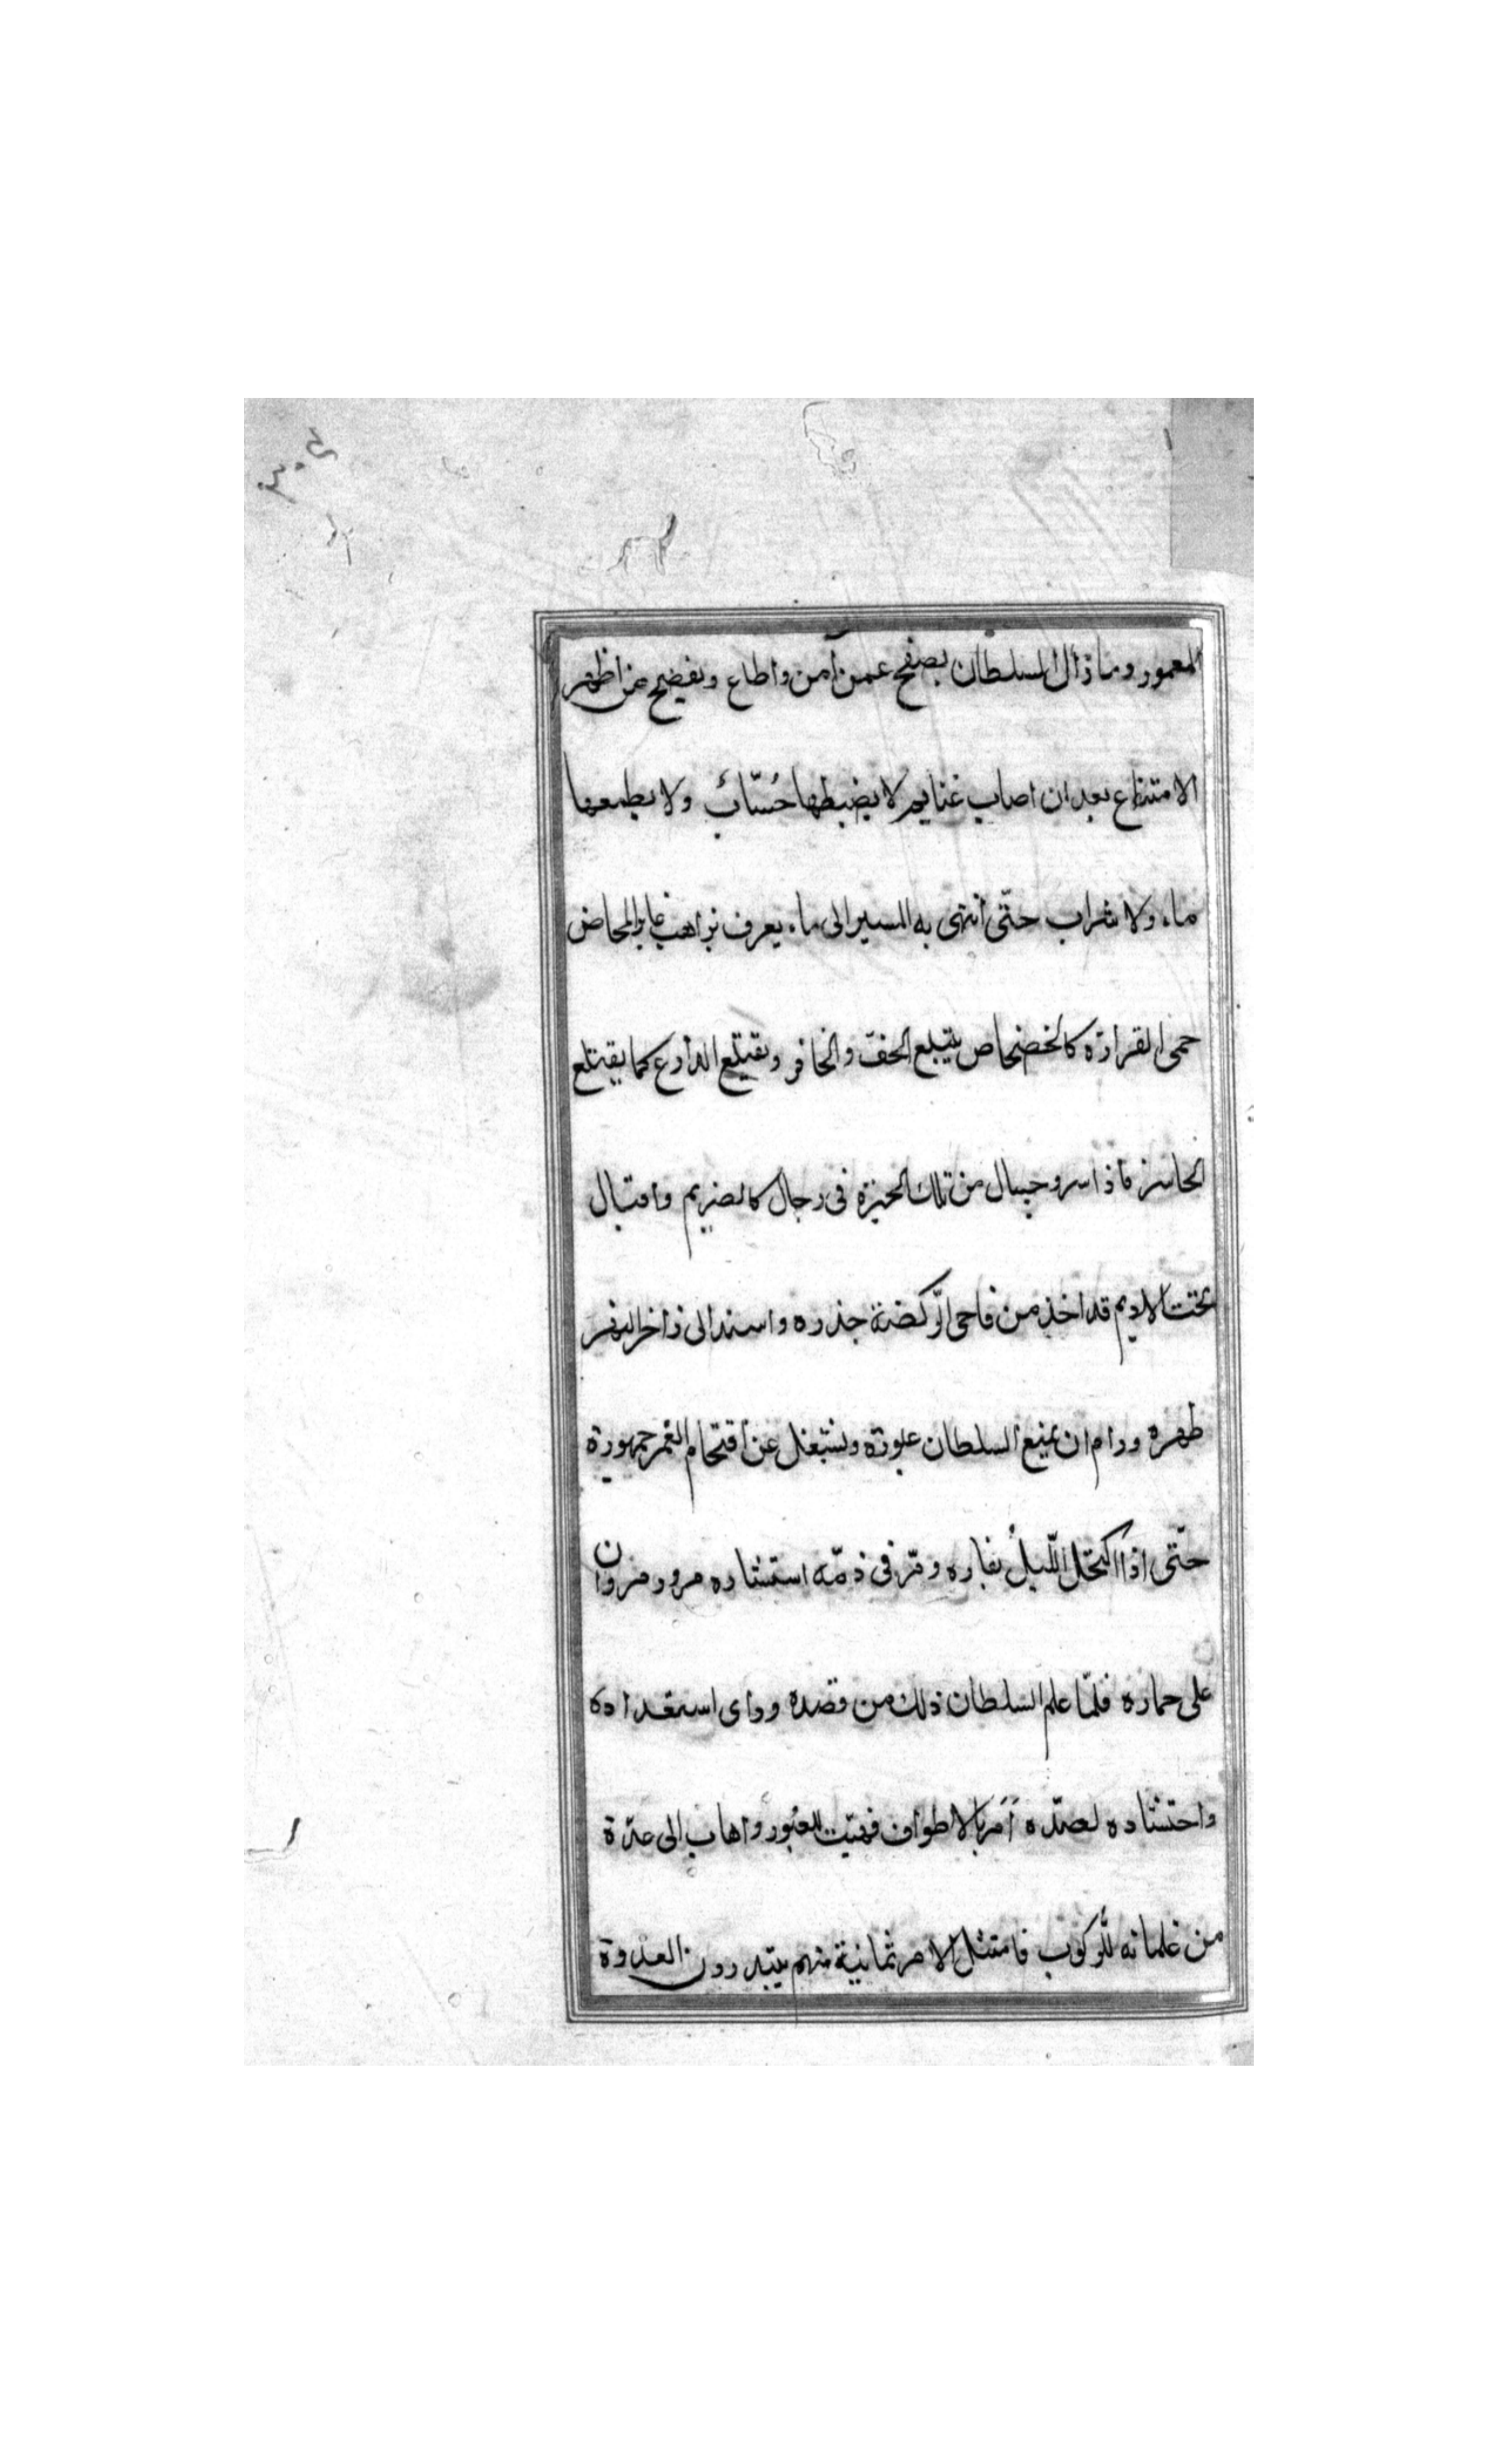 المعمور وما زال السلطان يصفح عمن آمن واطاع ويفضيح عن اظهر
الامتناع بعد ان اصاب غنايم لا يضبطها حُسّابٌ ولا يطيعها
ماء ولا شراب حتّى أنتهى به المسير الى ماء يعرف براهب غابر المخاض
حمى القرارة كالخضخاض يبتلع الخف والحافر ويقتلع الدارع كما يقتلع
الحاسر فاذا سروجيبال من تلك الحيزة فى رجال كالصريم وافبال
تحتت الاديم قد اخذ من فاحى الركضة جذره واسند الى زاخر النهر
ظهره ورام ان يمنع السلطان عبوره ويشتغل عن اقتحام الغمر جمهورة
حتّى اذا اكتحل اللّيلُ بقاره ومرّ فى ذمّة استتاره مرور مروان
على حماره فلمّا علم السلطان ذلك من قصده وراى استعداده
واحتشاده لصدّه أمَرَ بالاطواف فهيّت للعُبور واهاب الى عدّة
من غلمانه للّركوب فامتثل الامر ثمانية منهم يبتدرون العدوة